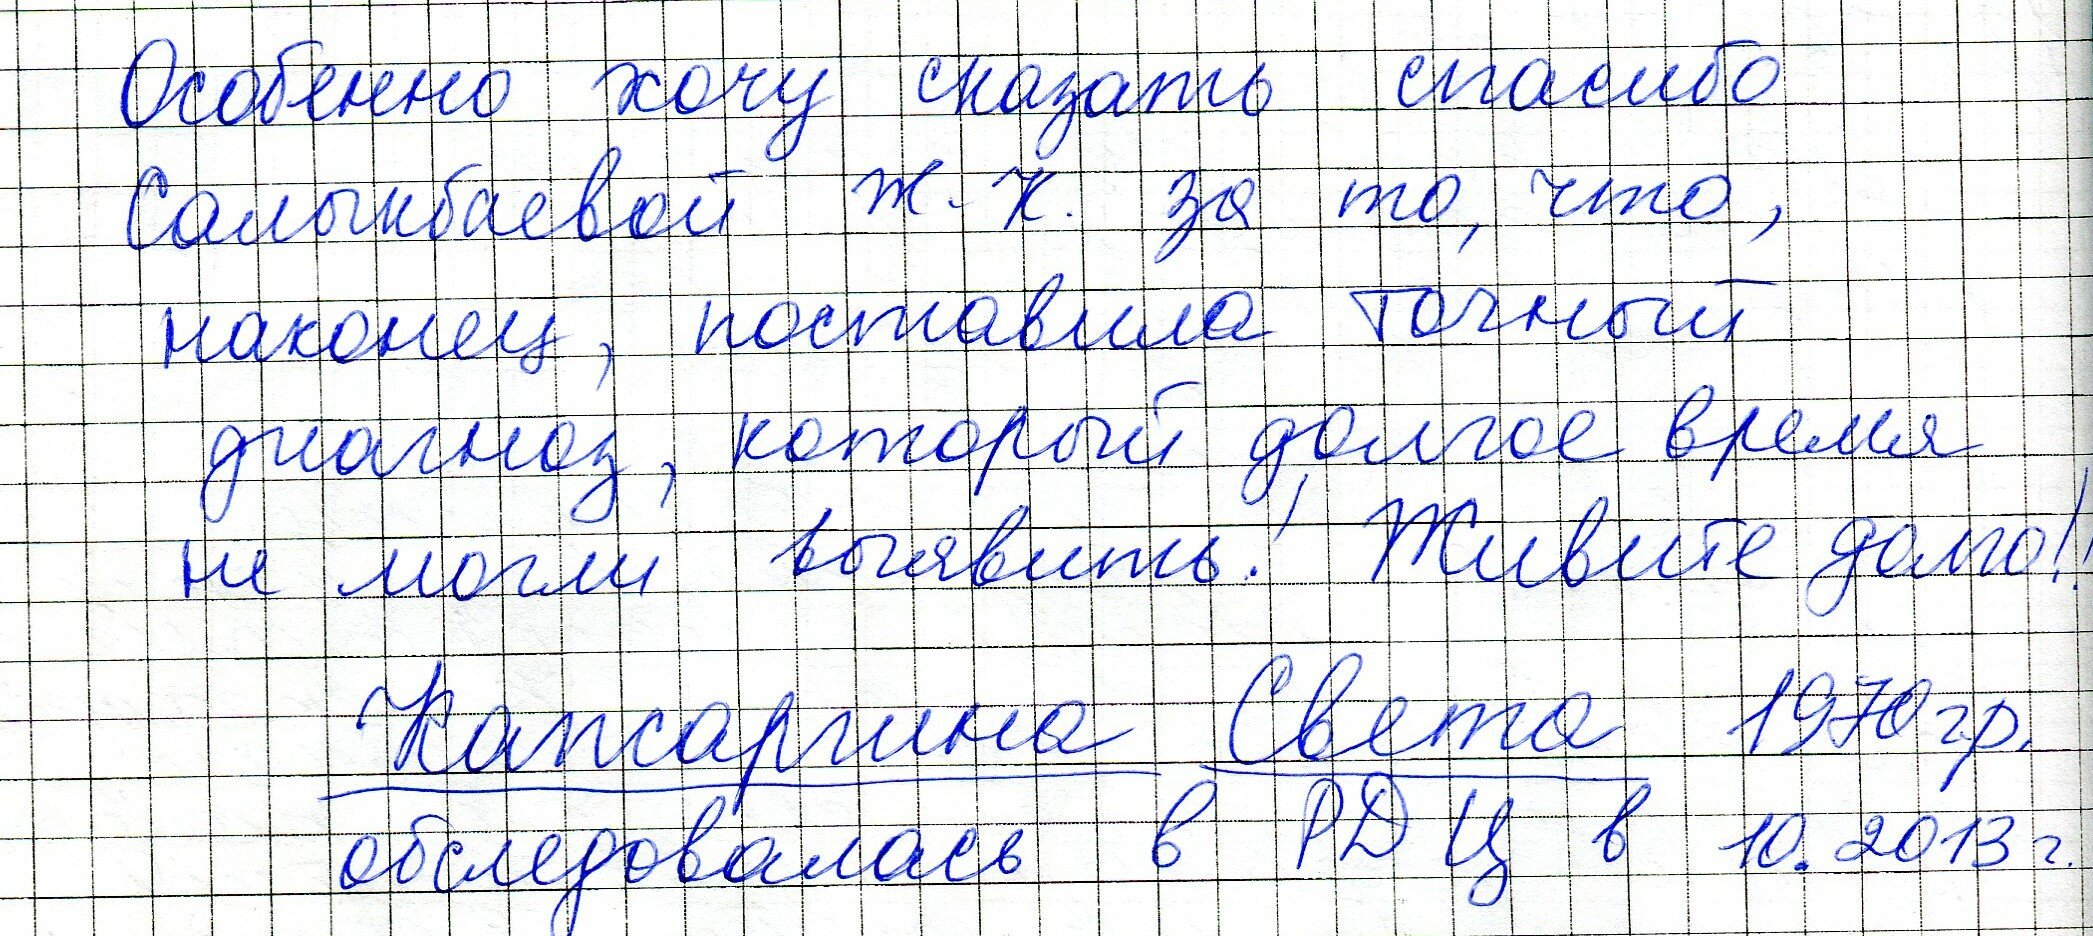 Особенно хочу сказать спасибо
Салыкбаевой Ж.К. за то, что,
наконец, поставила точный
диагноз, который долгое время
не могли выявить! Живите долго!!
Капсаргина Света 1970 гр.
обследовалась в РДЦ в 10.2013 г.